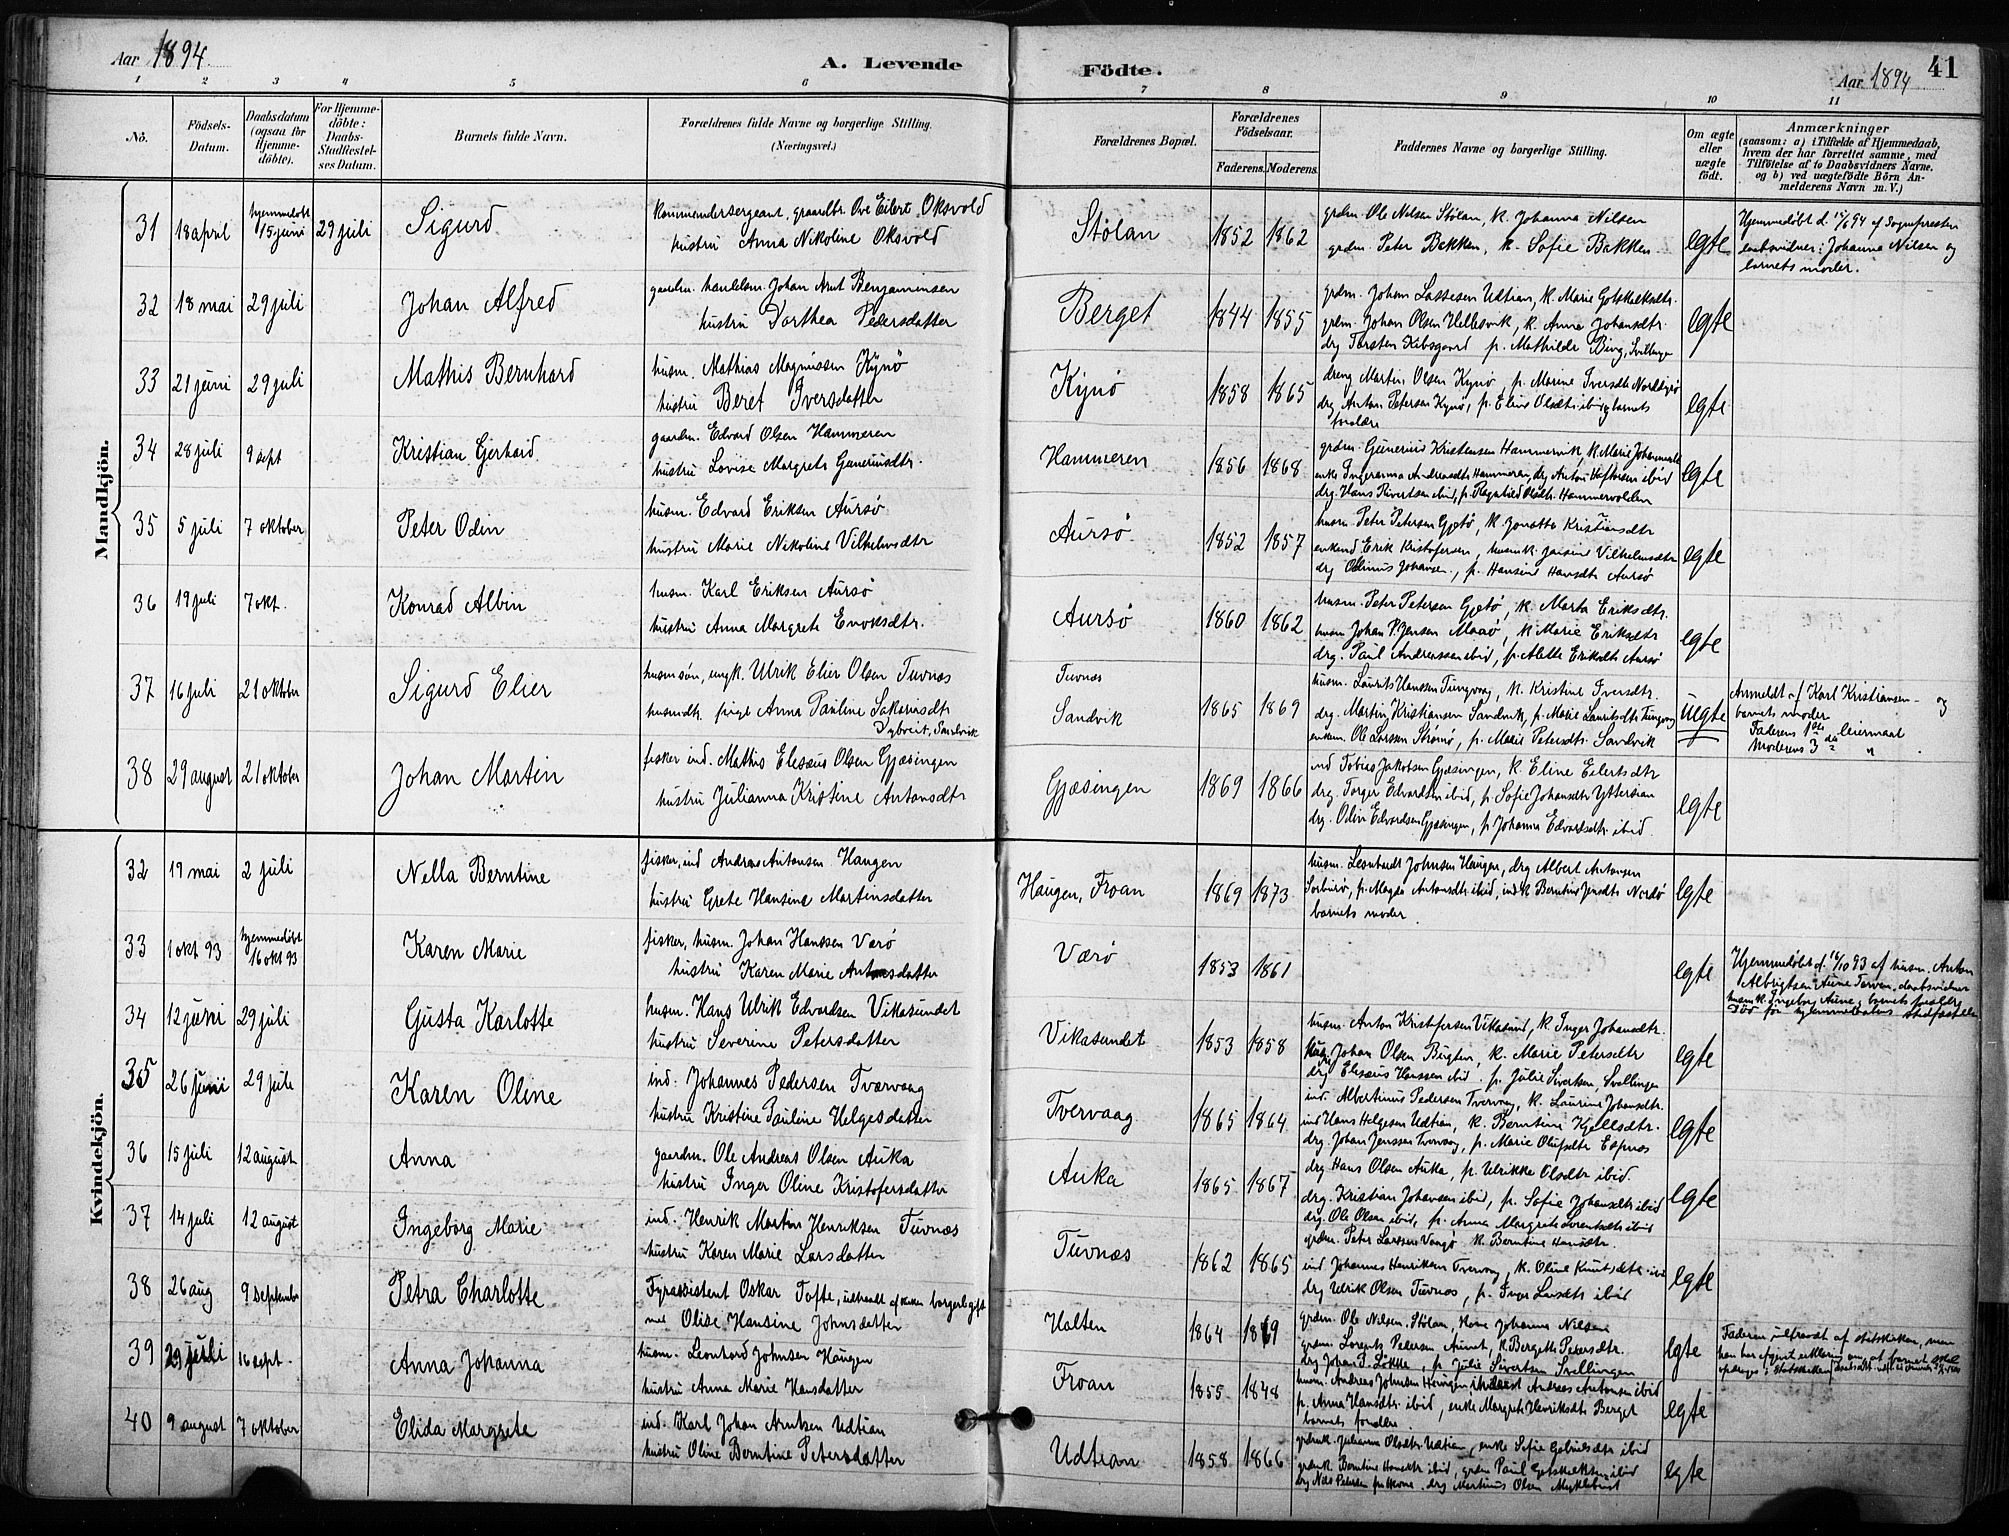 Aar 1894.
A. Levende
Födte.
Aar 1894
41
1 2 3 4 5 6 7 8 9 10 11
Nö.
Födsels-Datum.
Daabsdatum (ogsaa for Hjemmedöbte).
For Hjemmedöbte: Daabs-Stadfæstelses Datum.
Barnets fulde Navn.
Forældrenes fulde Navne og borgerlige Stilling. (Næringsvei.)
Forældrenes Bopæl.
Forældrenes Födselsaar.
Faderens. Moderens.
Faddernes Navne og borgerlige Stilling.
Om ægte eller uægte födt.
Anmærkninger
(saasom: a) i Tilfælde af Hjemmedaab, hvem der har forrettet samme, med Tilföielse af to Daabsvidners Navne, og b) ved uægtefödte Börn Anmelderens Navn m. V.)
Mandkjön.
31 18 april hjemmedøbt 15 juni 29 juli Sigurd
kommandersergeant, graardbr. Ove Eilert Oksvold
hustru Anna Nikoline Oksvold
Stølan 1852 1862
grdm. Ole Nilsen Stølan, k. Johanna Nilsen
grdm. Peter Bakken, k. Sofie Bakken
egte
Hjemmedøbt d. 15/6 94 af Sognepresten
daabsvidner: Johanna Nilsen og
barnets moder.
32 18 mai 29 juli Johan Alfred
gaardm. handelsm. Johan Arnt Benjaminsen
hustru Dorthea Pedersdatter
Berget 1844 1855
grdm. Johan Lassesen Udtian, k. Marie Gotskalksdtr.
grdm. Johan Olsen Hellesvik, k. Anna Johansdtr.
drg Torsten Kibsgaard p. Mathilde Bing, Svellingen
egte
33 21 juni 29 juli Mathis Bernhard
husm. Mathias Magnussen Kynø
hustru Beret Iversdatter
Kynø 1858 1865
dreng Martin Olsen Kynø, p. Marine Iversdtr Norddyrø
drg Anton Petersen Kynø, p. Eline Olsdtr ibid, barnets
forældre
egte
34 28 juli 9 sept Kristian Gerhard
gaardm. Edvard Olsen Hammeren
hustru Lovise Margrete Gunerusdtr.
Hammeren 1856 1868
grdm. Gunerius Kristensen Hammervik, k. Marie Johannesdtr
enke Ingeranna Andreasdtr Hammeren, drg Anton Haftorsen ibid
drg. Hans Sivertsen ibid, p. Ragnhild Olsdtr. Hammervolden
egte
35 5 juli 7 oktober Peter Odin
husm. Edvard Eriksen Aursø
hustru Marie Nikoline Vilhelmsdtr
Aursø 1852 1857
husm. Peter Petersen Gjetø, k. Jonetta Kristiansdtr
enkemd Erik Kristofersen, husm k. Jorsine Vilhelmsdtr
drg Odinus Johansen, p. Hansine Hansdtr Aursø
egte
36 19 juli 7 okt. Konrad Albin
husm. Karl Eriksen Aursø
hustru Anna Margrete Enoksdtr.
Aursø 1860 1862
husm. Peter Petersen Gjetø, k. Marta Eriksdtr.
husm Johan P. Jensen Maaø, k. Marie Eriksdtr
drg. Paul Andreassen ibid, p. Alette Eriksdtr Aursø
egte
37 16 juli 21 oktober Sigurd Elier
husmsøn, ungk. Ulrik Elier Olsen Tuvnæs
husmdtr. pige Anna Pauline Sakariasdtr
Dybveit, Sandvik
Tuvnæs
Sandvik 1865 1869
husm. Laurits Hanssen Tungvaag, k. Kristine Iversdtr.
drg. Martin Kristiansen Sandvik, p. Marie Lauritsdtr Tungvaag
enkem. Ole Larssen Strømø, p. Marie Petersdtr. Sandvik
uegte
Anmeldt af Karl Kristiansen og
barnets moder
Faderens 1ste leiermaal
Moderens 3die "
38 29 august 21 oktober Johan Martin
fisker ind. Mathis Elesæus Olsen Gjæsingen
hustru Julianna Kristine Antonsdtr
Gjæsingen 1869 1866
ind Tobias Jakobsen Gjæsingen, k. Eline Eilertsdtr
drg. Torger Edvardsen ibid, p. Sofie Johansdtr Yttersian
drg. Odin Edvardsen Gjæsingen, p. Johanna Edvardsdtr. ibid.
egte
Kvindekjön.
32 19 mai 2 juli Nella Berntine
fisker, ind Andreas Antonsen Haugen
hustru Grete Hansine Martinsdatter
Haugen, Froan 1869 1873
husm. Leonhardt Johnsen Haugen, drg Albert Antonsen
Sorburø, p. Magda Antonsdtr ibid, ind k Berntine Jensdtr Nordø
barnets moder.
egte
33 1 okt 93 hjemmedøbt 16 okt 93 Karen Marie
fisker, husm. Johan Hanssen Værø
hustru Karen Marie Antonsdatter
Værø 1853 1861
egte
Hjemmedøbt d. 16/10 93 af husm. Anton
Albrigtsen Aune Tarven, daabsvidner
husm k. Ingeborg Aune, barnets forældre
Død før hjemmedaabens stadfæstelse
34 12 juni 29 juli Gusta Karlotte
husm. Hans Ulrik Edvardsen Vikasundet
hustru Severine Petersdatter
Vikasundet 1853 1858
husm. Anton Kristofersen Vikasund, k. Inger Johansdtr.
Johan Olsen Bugten, k. Marie Petersdtr
drg Elesæus Hanssen ibid. p. Julie Sivertsen, Svellingen
egte
35 26 juni 29 juli Karen Oline
ind. Johannes Pedersen Tværvaag
hustru Kristine Pauline Helgesdatter
Tvervaag 1865 1864
ind. Albertinus Pedersen Tvervaag, k. Laurine Johansdtr.
ind Hans Helgesen Udtian, k. Berntine Kjellsdtr.
drg. Johan Jenssen Tvervaag, p. Marie Olufsdtr Espnæs
egte
36 15 juli 12 august Anna
gaardm. Ole Andreas Olsen Auka
hustru Inger Oline Kristofersdatter
Auka 1865 1867
drg Hans Olsen Auka, p. Ulrikke Olsdtr ibid.
drg. Kristian Johansen ibid, p. Sofie Johansdtr ibid
drg. Ole Olsen ibid, p. Anna Margrete Lorentsdtr ibid
egte
37 14 juli 12 august Ingeborg Marie
ind. Henrik Morton Henriksen Tuvnæs
hustru Karen Marie Larsdatter
Tuvnæs 1862 1865
grdm. Peter Larssen Vaagø k. Berntine Hansdtr.
ind Johannes Henriksen Tvervaag, k. Oline Knutsdtr ibid
drg Ulrik Olsen Tuvnæs, p. Inger Larsdtr ibid
egte
38 26 aug 9 september Petra Charlotte
Fyrassistent Oskar Tofte, udtraadt af kirken borgerl. gift
med Olise Hansine Johnsdatter
Halten 1864 1869
grdm. Ole Nilsen Stølan, Kone Johanna Nilsen
grdm. Lorents Pedersen Aunet, k. Bergette Petersdtr.
drg Johan P. Løkke, p. Julie Sivertsen Svellingen
egte
Faderen udtraadt af statskirken, men
han har afgivet erklæring om, at barnet skal
opdrages i statskirken
39 29 juli 16 sept. Anna Johanna
husm. Leonhard Johnsen Haugen
hustru Anna Marie Hansdatter
Froan 1855 1848
husm. Andreas Johnsen Haugen, Andreas Antonsen ibid
p. Anna Hansdtr. ibid, enke Margrete Henriksdtr Berget
barnets forældre
egte
40 9 august 7 oktober Elida Margrete
ind. Karl Johan Arntsen Udtian
hustru Oline Berntine Petersdatter
Udtian 1858 1866
grdmk. Julianna Olsdtr. Udtian, enke Sofie Gabrielsdtr ibid
grdmk. Berntine Hansdtr ibid, grdm Paul Gotskalksen ibid
drg Nils Pedersen, drg Martinus Olsen Myklebust
egte